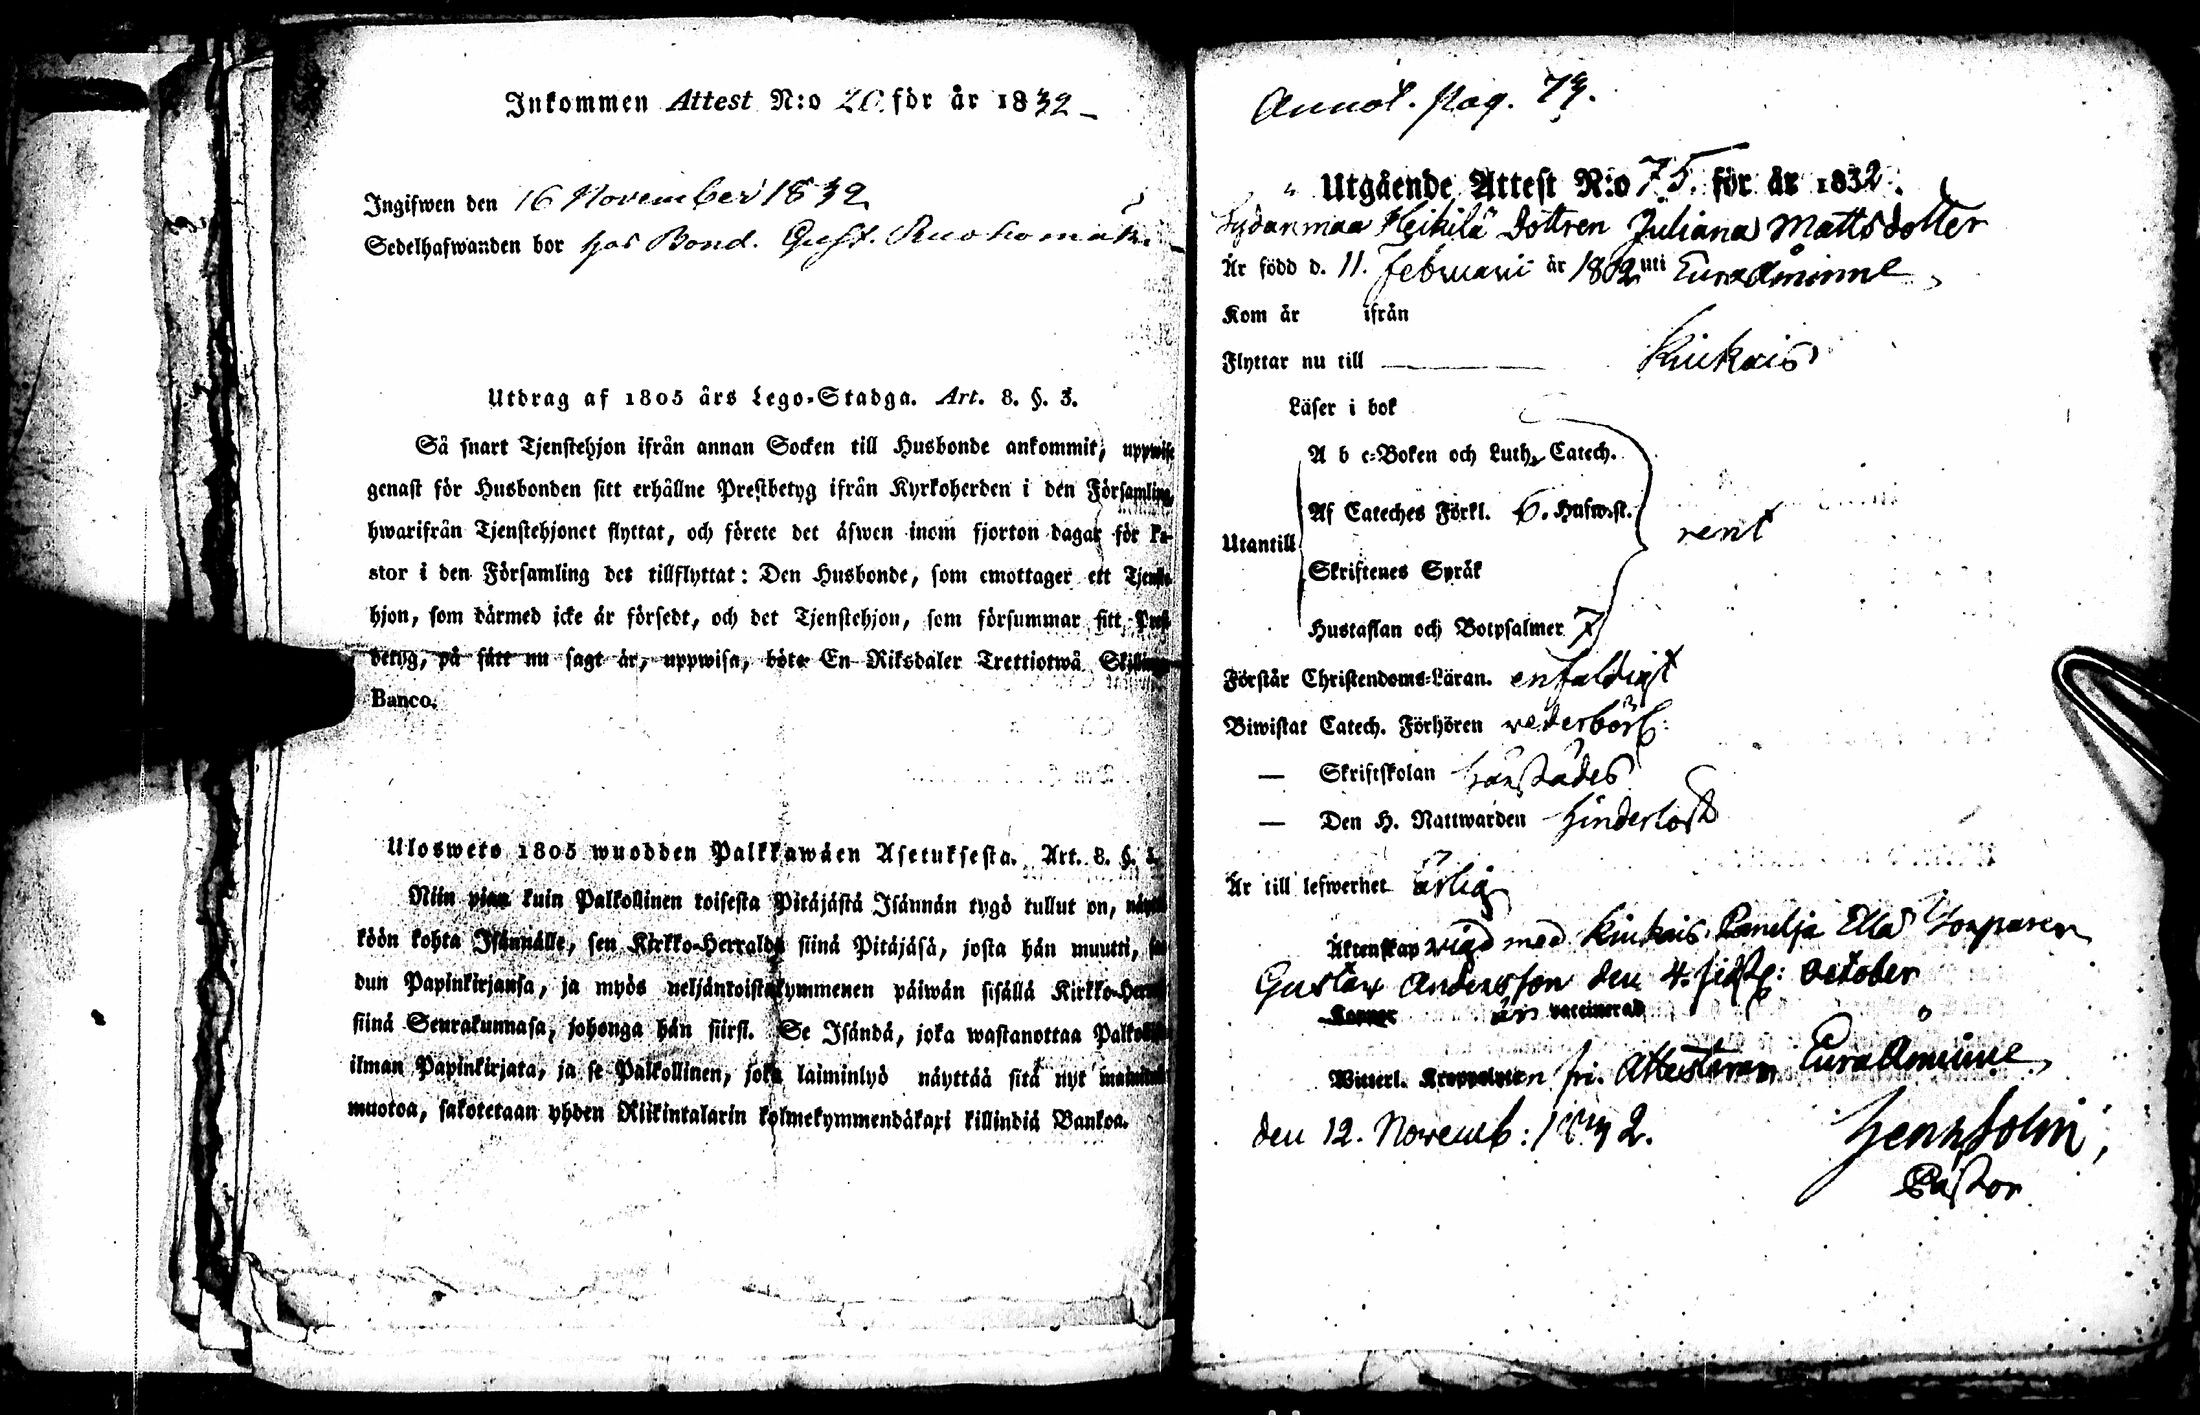 Inkommen Attest N:o 20. för år 1832
Ingifwen den 16 November 1832
Sedelhafwanden bor hos Bond. Gust. Ruohomäki
Utdrag af 1805 års Lego-Stadga. Art. 8. §. 3.
Så snart Tjenstehjon ifrån annan Socken till Husbonde ankommit, uppwise
genast för Husbonden sitt erhållne Prestbetyg ifrån Kyrkoherden i den Församling,
hwarifrån Tjenstehjonet flyttat, och förete det äfwen inom fjorton dagar för Pa-
stor i den Församling det tillflyttat: Den Husbonde, som emottager ett Tjenste-
hjon, som därmed icke är försedt, och det Tjenstehjon, som försummar sitt Prest-
betyg, på sätt nu sagt är, uppwisa, böte En Riksdaler Trettiotwå Skillingar
Banco.
Ulosweto 1805 wuodden Palkkawäen Asetuksesta. Art. 8. §. 3.
Niin pian kuin Palkollinen toisesta Pitäjästä Isännän tygö tullut on, näyttä-
köön kohta Isännälle, sen Kirkko-Herralda siinä Pitäjäsä, josta hän muutti,
dun Papinkirjansa, ja myös neljäntoistakymmenen päiwän sisällä Kirkko-Herralle
siinä Seurakunnasa, johonga hän siirst. Se Isändä, joka wastanottaa Palkollisen
ilman Papinkirjata, ja se Palkollinen, joka laiminlyö näyttää sitä nyt mainitud
muotoa, sakotetaan yhden Riikintalarin kolmekymmendäkaxi killindiä Bankoa.
Annot. pag. 73.
Utgående Attest N:o 75. för år 1832.
Sydänmaa Heikilä dottren Juliana Mattsdotter
Är född d. 11. februari år 1802 uti Euraåminne
Kom år ifrån
Flyttar nu till Kiukais
Läser i bok
A b c-Boken och Luth. Catech.
Af Cateches Förkl. 6. Hufwst.
rent
Utantill
Skriftenes Språk
Hustaflan och Botpsalmer 7
Förstår Christendoms-Läran. enfaldigt
Biwistat Catech. Förhören vederbörl:
— Skriftskolan härstädes
— Den H. Nattwarden hinderlöst
Är till lefwernet ärlig
Äktenskap vigd med Kiukais Panelja Ella Torparen
Gustav Andersson den 4. sidstl: October
Koppor är vaccinerad
Witterl. Kroppslyten fri. Attesteras Euraåminne
den 12. Novemb: 1832.
Pastor